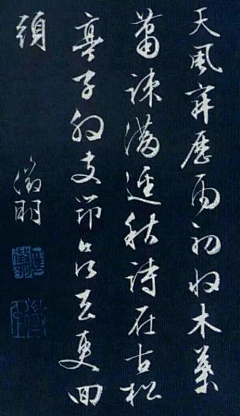 天風歷雨初收木葉
蕭疎滿逕秋詩在古松
亭子外支筇去更回
頭
徵明